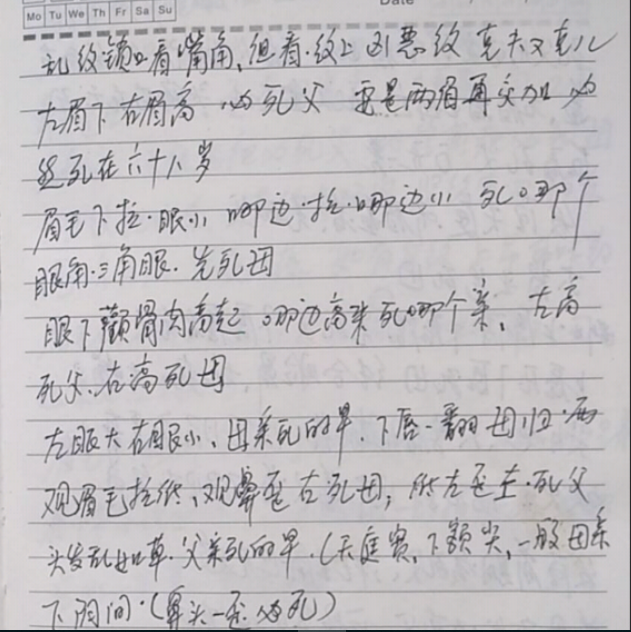 Mo Tu We Th Fr Sa Su
Date
乱纹锁口看嘴角，但看·纹上凶恶纹 克夫又克儿
左眉下右眉高 必死父 要是两眉再交加 必
然死在六十八岁
眉毛下拉·眼小 哪边·拉·哪边小 死哪个
眼角·三角眼·先死母
眼下颧骨肉高起 哪边高来死哪个亲、左高
死父、右高死母
左眼大右眼小、母亲死的早·下唇一翻母归·西
观眉毛拉低、观鼻歪右死母；歪左·死父
头发乱如草·父亲死的早·（天庭宽，下额尖，一般母亲
下阴间·（鼻头一歪必死）